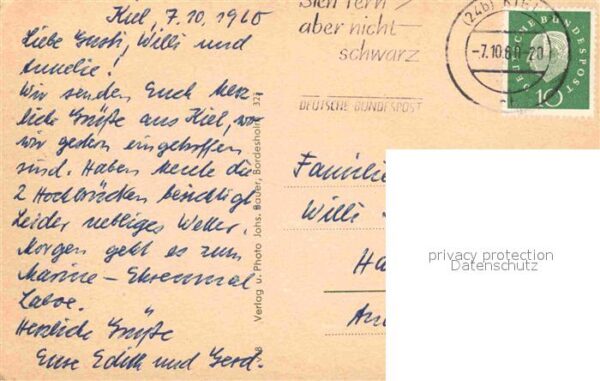 Kiel, 7.10.1960
Liebe Gusti, Willi und
Annelie!
Wir senden Euch herz-
liche Grüße aus Kiel, wo
wir gestern eingetroffen
sind. Haben heute die
2 Hochbrücken besichtigt
Leider nebliges Wetter.
Morgen geht es zum
Marine-Ehrenmal
Laboe.
Herzliche Grüße
Eure Edith und Gerd.
Verlag u. Photo Johs. Bauer, Bordesholm
aber nicht
schwarz
DEUTSCHE BUNDESPOST
(24b) KIEL
-7.10.60-20
DEUTSCHE BUNDESPOST
10
Familie
Willi
privacy protection
Datenschutz